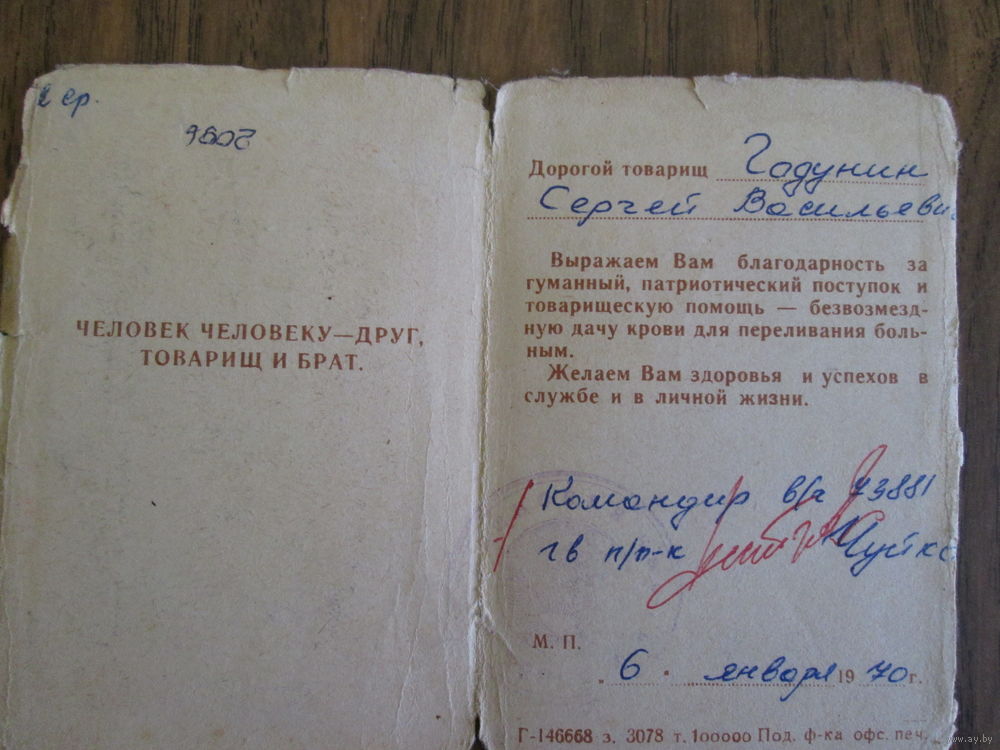 2 ср.
2096
ЧЕЛОВЕК ЧЕЛОВЕКУ—ДРУГ,
ТОВАРИЩ И БРАТ.
Дорогой товарищ Годунин
Сергей Васильеви
Выражаем Вам благодарность за
гуманный, патриотический поступок и
товарищескую помощь — безвозмезд-
ную дачу крови для переливания боль-
ным.
Желаем Вам здоровья и успехов в
службе и в личной жизни.
Командир в/ч 73881
гв п/п-к Чуйко
М. П.
„ 6 " января 1970 г.
Г-146668 з. 3078 т. 100000 Под. ф-ка офс. печ.
www.ay.by